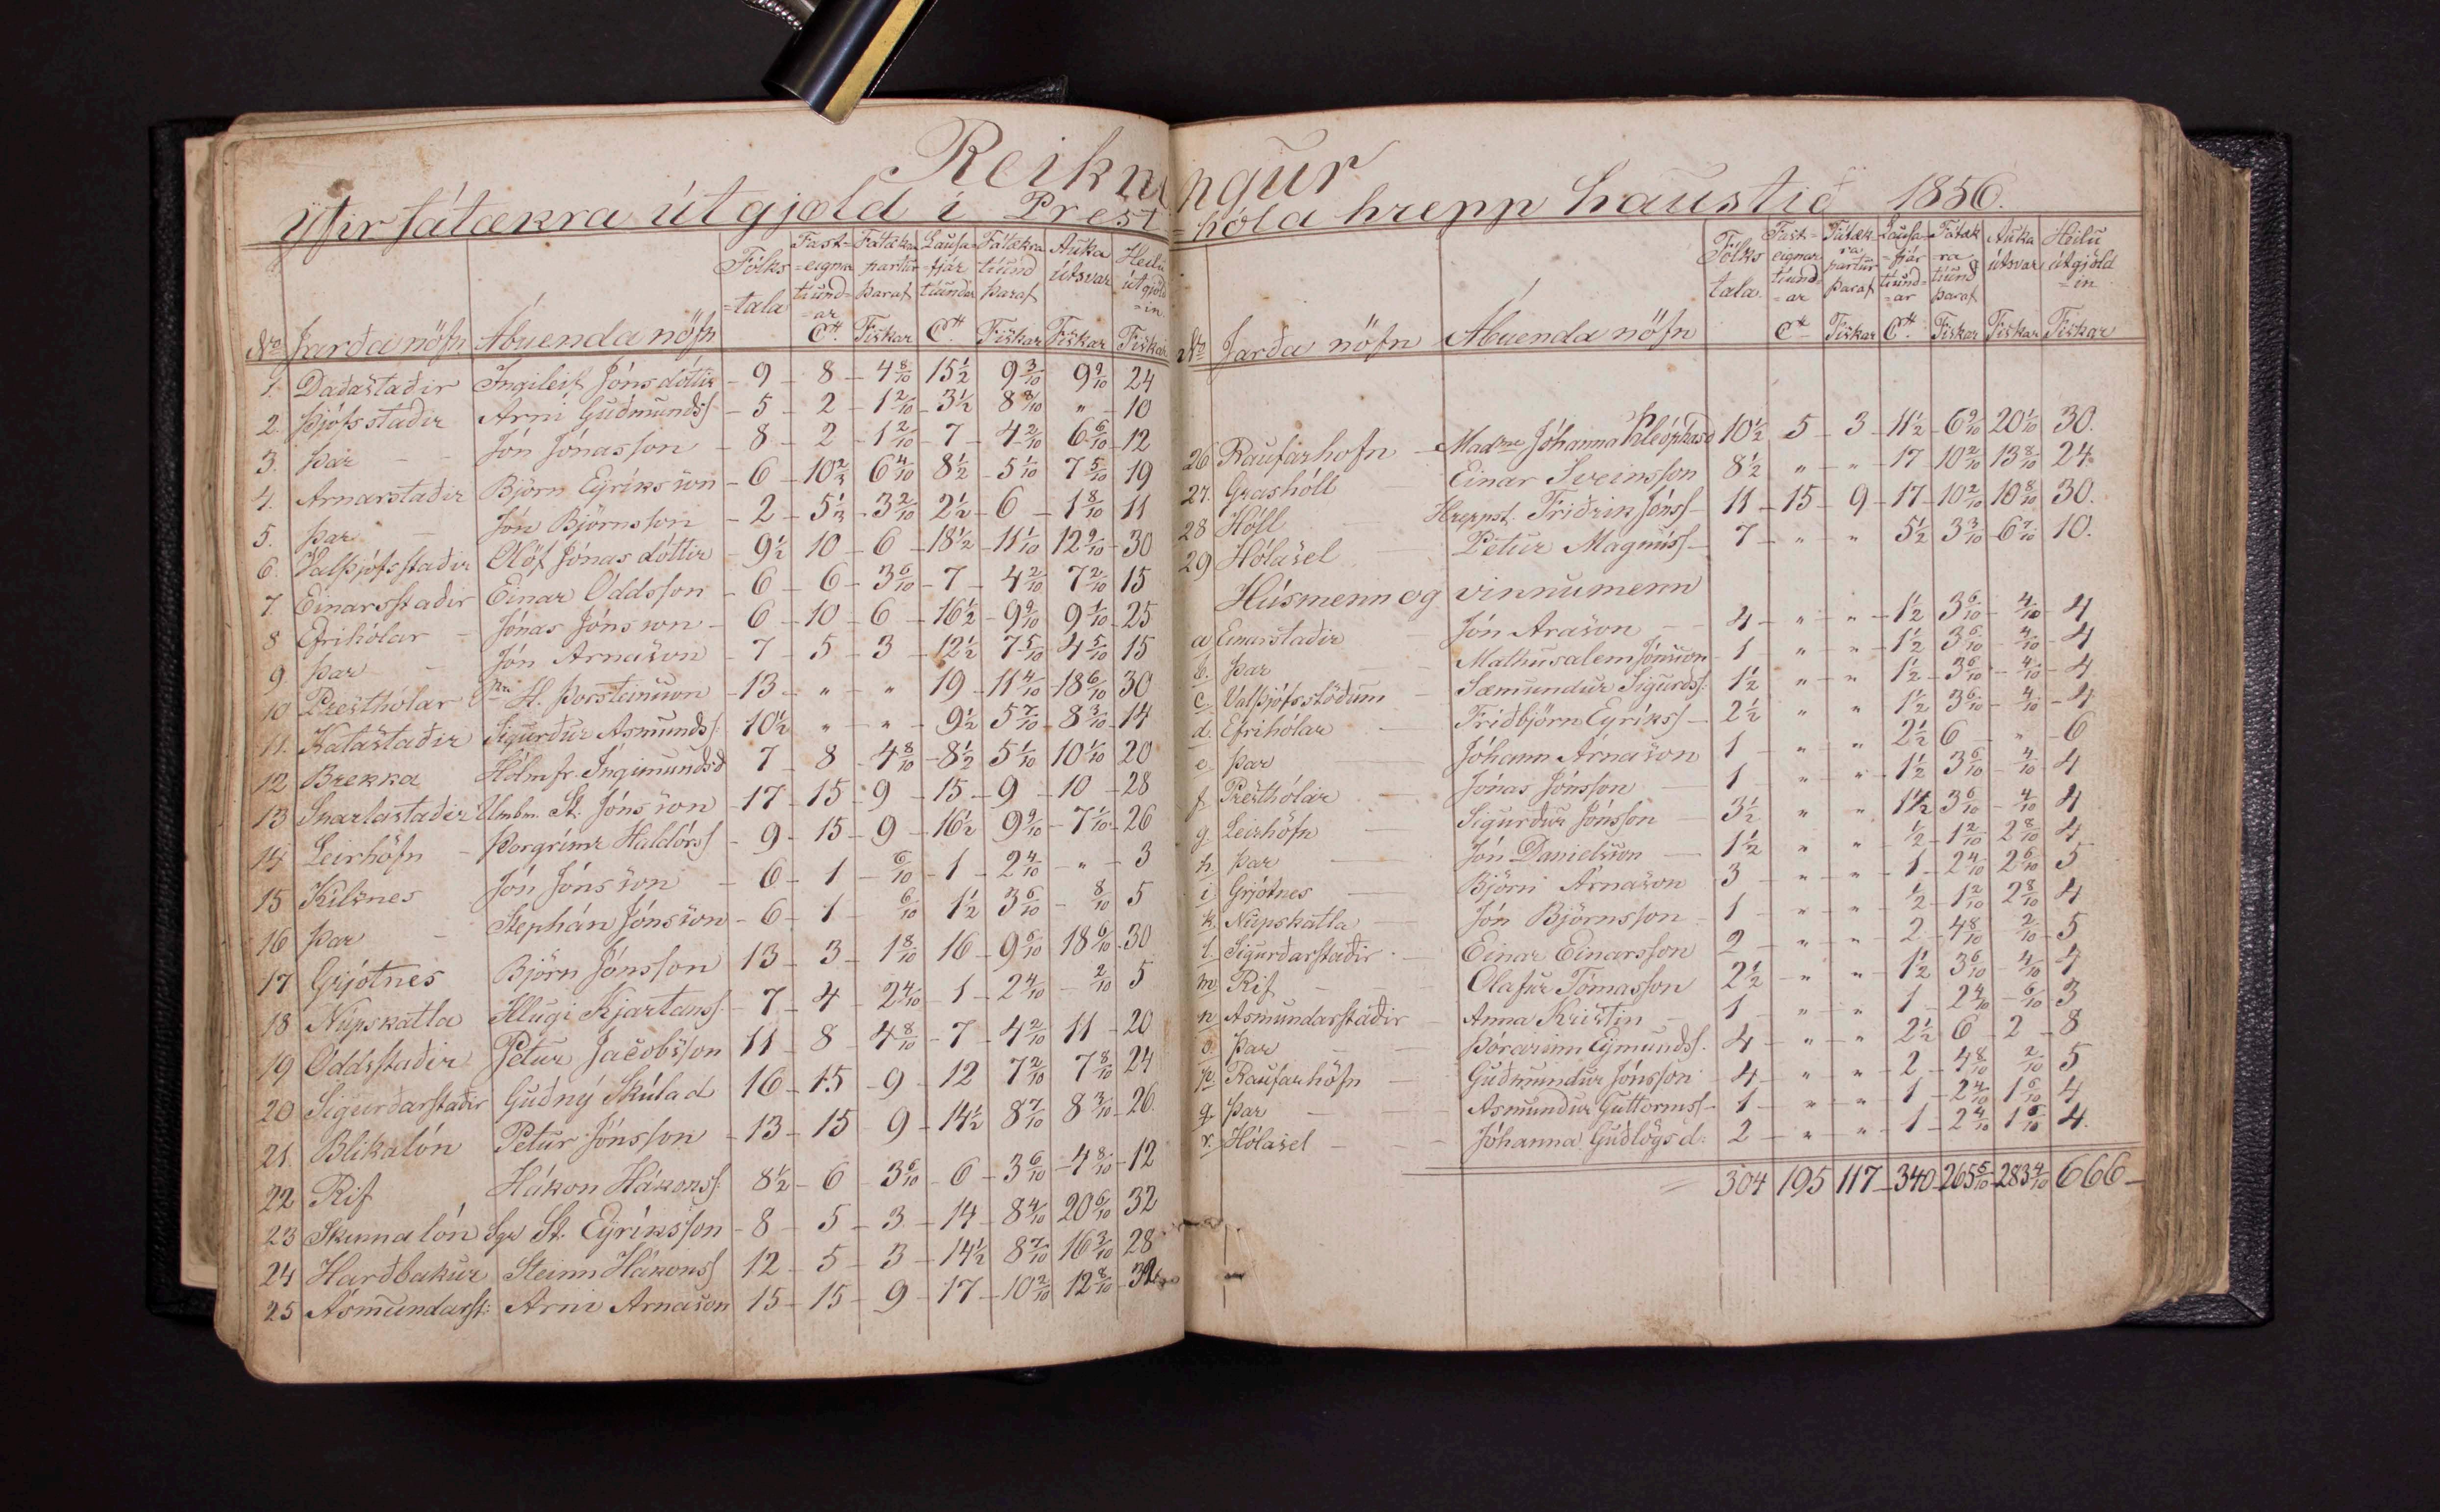 Reikningur
Yfir fátækra útgjöld i Prest=hóla hrepp haustið 1856.
No Jarða nöfn Ábuenda nöfn Fólks=tala Fast=eignar tíund=ar Ctt. Fátækra partur þaraf Fiskar Lausa=fjár tíundar Ctt. Fátækra tíund þaraf Fiskar Auka útsvar Fiskar Heilu útgjöld=in Fiskar
1. Daðastaðir Ingileif Jónsdóttir 9 8 4 8/10 15 1/2 9 3/10 9 9/10 24
2. Þjófsstaðir Arni Guðmunds 5 2 1 2/10 3 1/2 8 8/10 " 10
3. Þar Jón Jónasson 8 2 1 2/10 7 4 2/10 6 6/10 12
4. Arnarstaðir Björn Eyríksson 6 10 2/3 6 4/10 8 1/2 5 1/10 7 5/10 19
5. Þar Jón Björnsson 2 5 1/3 3 2/10 2 1/2 6 1 8/10 11
6. Valþjófsstaðir Olöf Jónasdóttir 9 1/2 10 6 18 1/2 11 1/10 12 9/10 30
7 Einarsstaðir Einar Oddsson 6 6 3 6/10 7 4 2/10 7 2/10 15
8 Efrihólar Jónas Jónsson 6 10 6 16 1/2 9 9/10 9 1/10 25
9. Þar Jón Arnason 7 5 3 12 1/2 7 5/10 4 5/10 15
10 Presthólar H. Þorsteinsson 13 " " 19 11 4/10 18 6/10 30
11. Katastaðir Sigurður Asmunds: 10 1/2 " " 9 1/2 5 7/10 8 3/10 14
12 Brekka Hólmfr. Ingimundsd 7 8 4 8/10 8 1/2 5 1/10 10 1/10 20
13 Snartastaðir Umbm. St. Jónsson 17 15 9 15 9 10 28
14 Leirhöfn Þorgrímr Haldórs 9 15 9 16 1/2 9 9/10 7 1/10 26
15 Kilsnes Jón Jónsson 6 1 6/10 1 2 4/10 " 3
16 Þar Stephán Jónsson 6 1 6/10 1 1/2 3 6/10 8/10 5
17 Grjótnes Björn Jónsson 13 3 1 8/10 16 9 6/10 18 6/10 30
18 Núpskatla Illugi Kjartans 7 4 2 4/10 1 2 4/10 2/10 5
19 Oddsstaðir Petur Jacobsson 11 8 4 8/10 7 4 2/10 11 20
20 Sigurðarstaðir Guðný Skúlad 16 15 9 12 7 2/10 7 8/10 24
21. Blikalón Petur Jónsson 13 15 9 14 1/2 8 7/10 8 3/10 26
22 Rif Hákon Hákons 8 1/2 6 3 6/10 6 3 6/10 4 8/10 12
23 Skinnalón Sgr St. Eyríksson 8 5 3 14 8 4/10 20 6/10 32
24 Harðbakur Steinn Hákons 12 5 3 14 1/2 8 7/10 16 3/10 28
25 Ásmundarst: Arni Arnason 15 15 9 17 10 2/10 12 8/10 32
No Jarða nöfn Ábuenda nöfn Fólks tala. Fast=eignar tíund=ar Ctt Fátæk=ra partur þaraf Fiskar Lausa=fjár tíund=ar Ctt. Fátæk=ra tíund þaraf Fiskar Auka útsvar Fiskar Heilu útgjöld=in Fiskar
26 Raufarhöfn Madme Jóhanna Kleóphasd 10 1/2 5 3 11 1/2 6 9/10 20 1/10 30.
27. Grashóll Einar Sveinsson 8 1/2 " " 17 10 2/10 13 8/10 24
28 Hóll Hreppst. Friðrik Jóns 11 15 9 17 10 2/10 10 8/10 30.
29 Hólasel Petur Magnús 7 " " 5 1/2 3 3/10 6 7/10 10.
Húsmenn og vinnumenn
a Einarstaðir Jón Arason 4 " " 1 1/2 3 6/10 4/10 4
b. Þar Mathusalem Jónsson 1 " " 1 1/2 3 6/10 4/10 4
c Valþjófsstöðum Sæmundur Sigurðs: 1 1/2 " " 1 1/2 3 6/10 4/10 4
d. Efrihólar Friðbjörn Eyríks 2 1/2 " " 1 1/2 3 6/10 4/10 4
e Þar Jóhann Árnason 1 " " 2 1/2 6 " 6
f. Presthólar Jónas Jónsson 1 " " 1 1/2 3 6/10 4/10 4
g. Leirhöfn Sigurður Jónsson 3 1/2 " " 1 1/2 3 6/10 4/10 4
h. Þar Jón Danielsson 1 1/2 " " 1/2 1 2/10 2 8/10 4
i Grjótnes Björn Árnason 3 " " 1 2 4/10 2 6/10 5
k. Núpskatla Jón Björnsson 1 " " 1/2 1 2/10 2 8/10 4
l. Sigurðarstaðir Einar Einarsson 2 " " 2 4 8/10 2/10 5
m Rif Olafur Tómasson 2 1/2 " " 1 1/2 3 6/10 4/10 4
n Asmundarstaðir Anna Kristin 1 " " 1 2 4/10 6/10 3
o. Þar Þórarinn Eymunds 4 " " 2 1/2 6 2 8
p. Raufarhöfn Guðmundur Jónsson 4 " " 2 4 8/10 2/10 5
q. Þar Asmundur Guttorms 1 " " 1 2 4/10 1 6/10 4
r. Hólasel Jóhanna Guðlögsd: 2 " " 1 2 4/10 1 6/10 4.
304 195 117 340 265 5/10 283 4/10 666